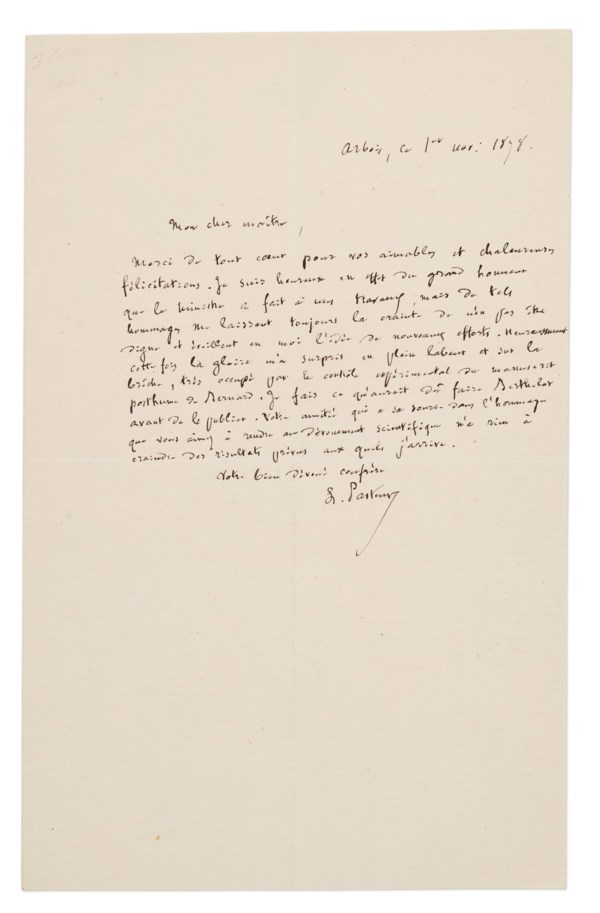 Arbois, ce 1er nov: 1878.
Mon cher maître,
Merci de tout cœur pour vos aimables et chaleureuses
félicitations. Je suis heureux en effet du grand honneur
que le ministre a fait à mes travaux, mais de tels
hommages me laissent toujours la crainte de n'en pas être
digne et éveillent en moi l'idée de nouveaux efforts. Heureusement
cette fois la gloire m'a surpris en plein labeur et sur la
brèche, très occupé par le contrôle expérimental du manuscrit
posthume de Bernard. Je fais ce qu'aurait dû faire Berthelot
avant de le publier. Votre amitié qui a sa source dans l'hommage
que vous aimez à rendre au dévouement scientifique n'a rien à
craindre des résultats prévus aux quels j'arrive.
Votre bien dévoué confrère
L. Pasteur